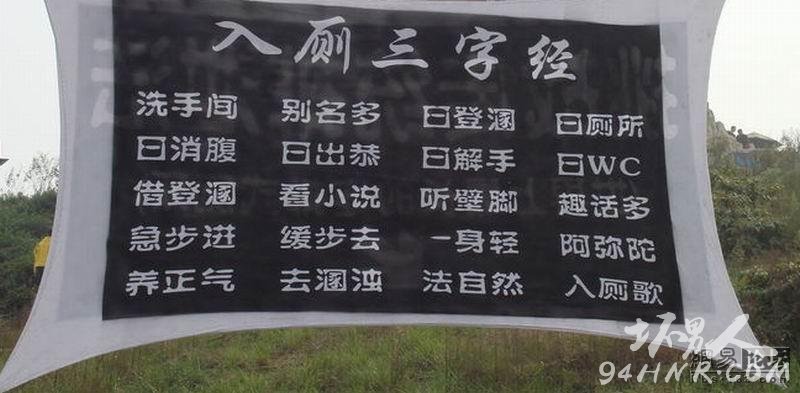 入厕三字经
洗手间 别名多 曰登溷 曰厕所
曰消腹 曰出恭 曰解手 曰WC
借登溷 看小说 听壁脚 趣话多
急步进 缓步去 一身轻 阿弥陀
养正气 去溷浊 法自然 入厕歌
坏男人
网易 论坛
94HNR.COM